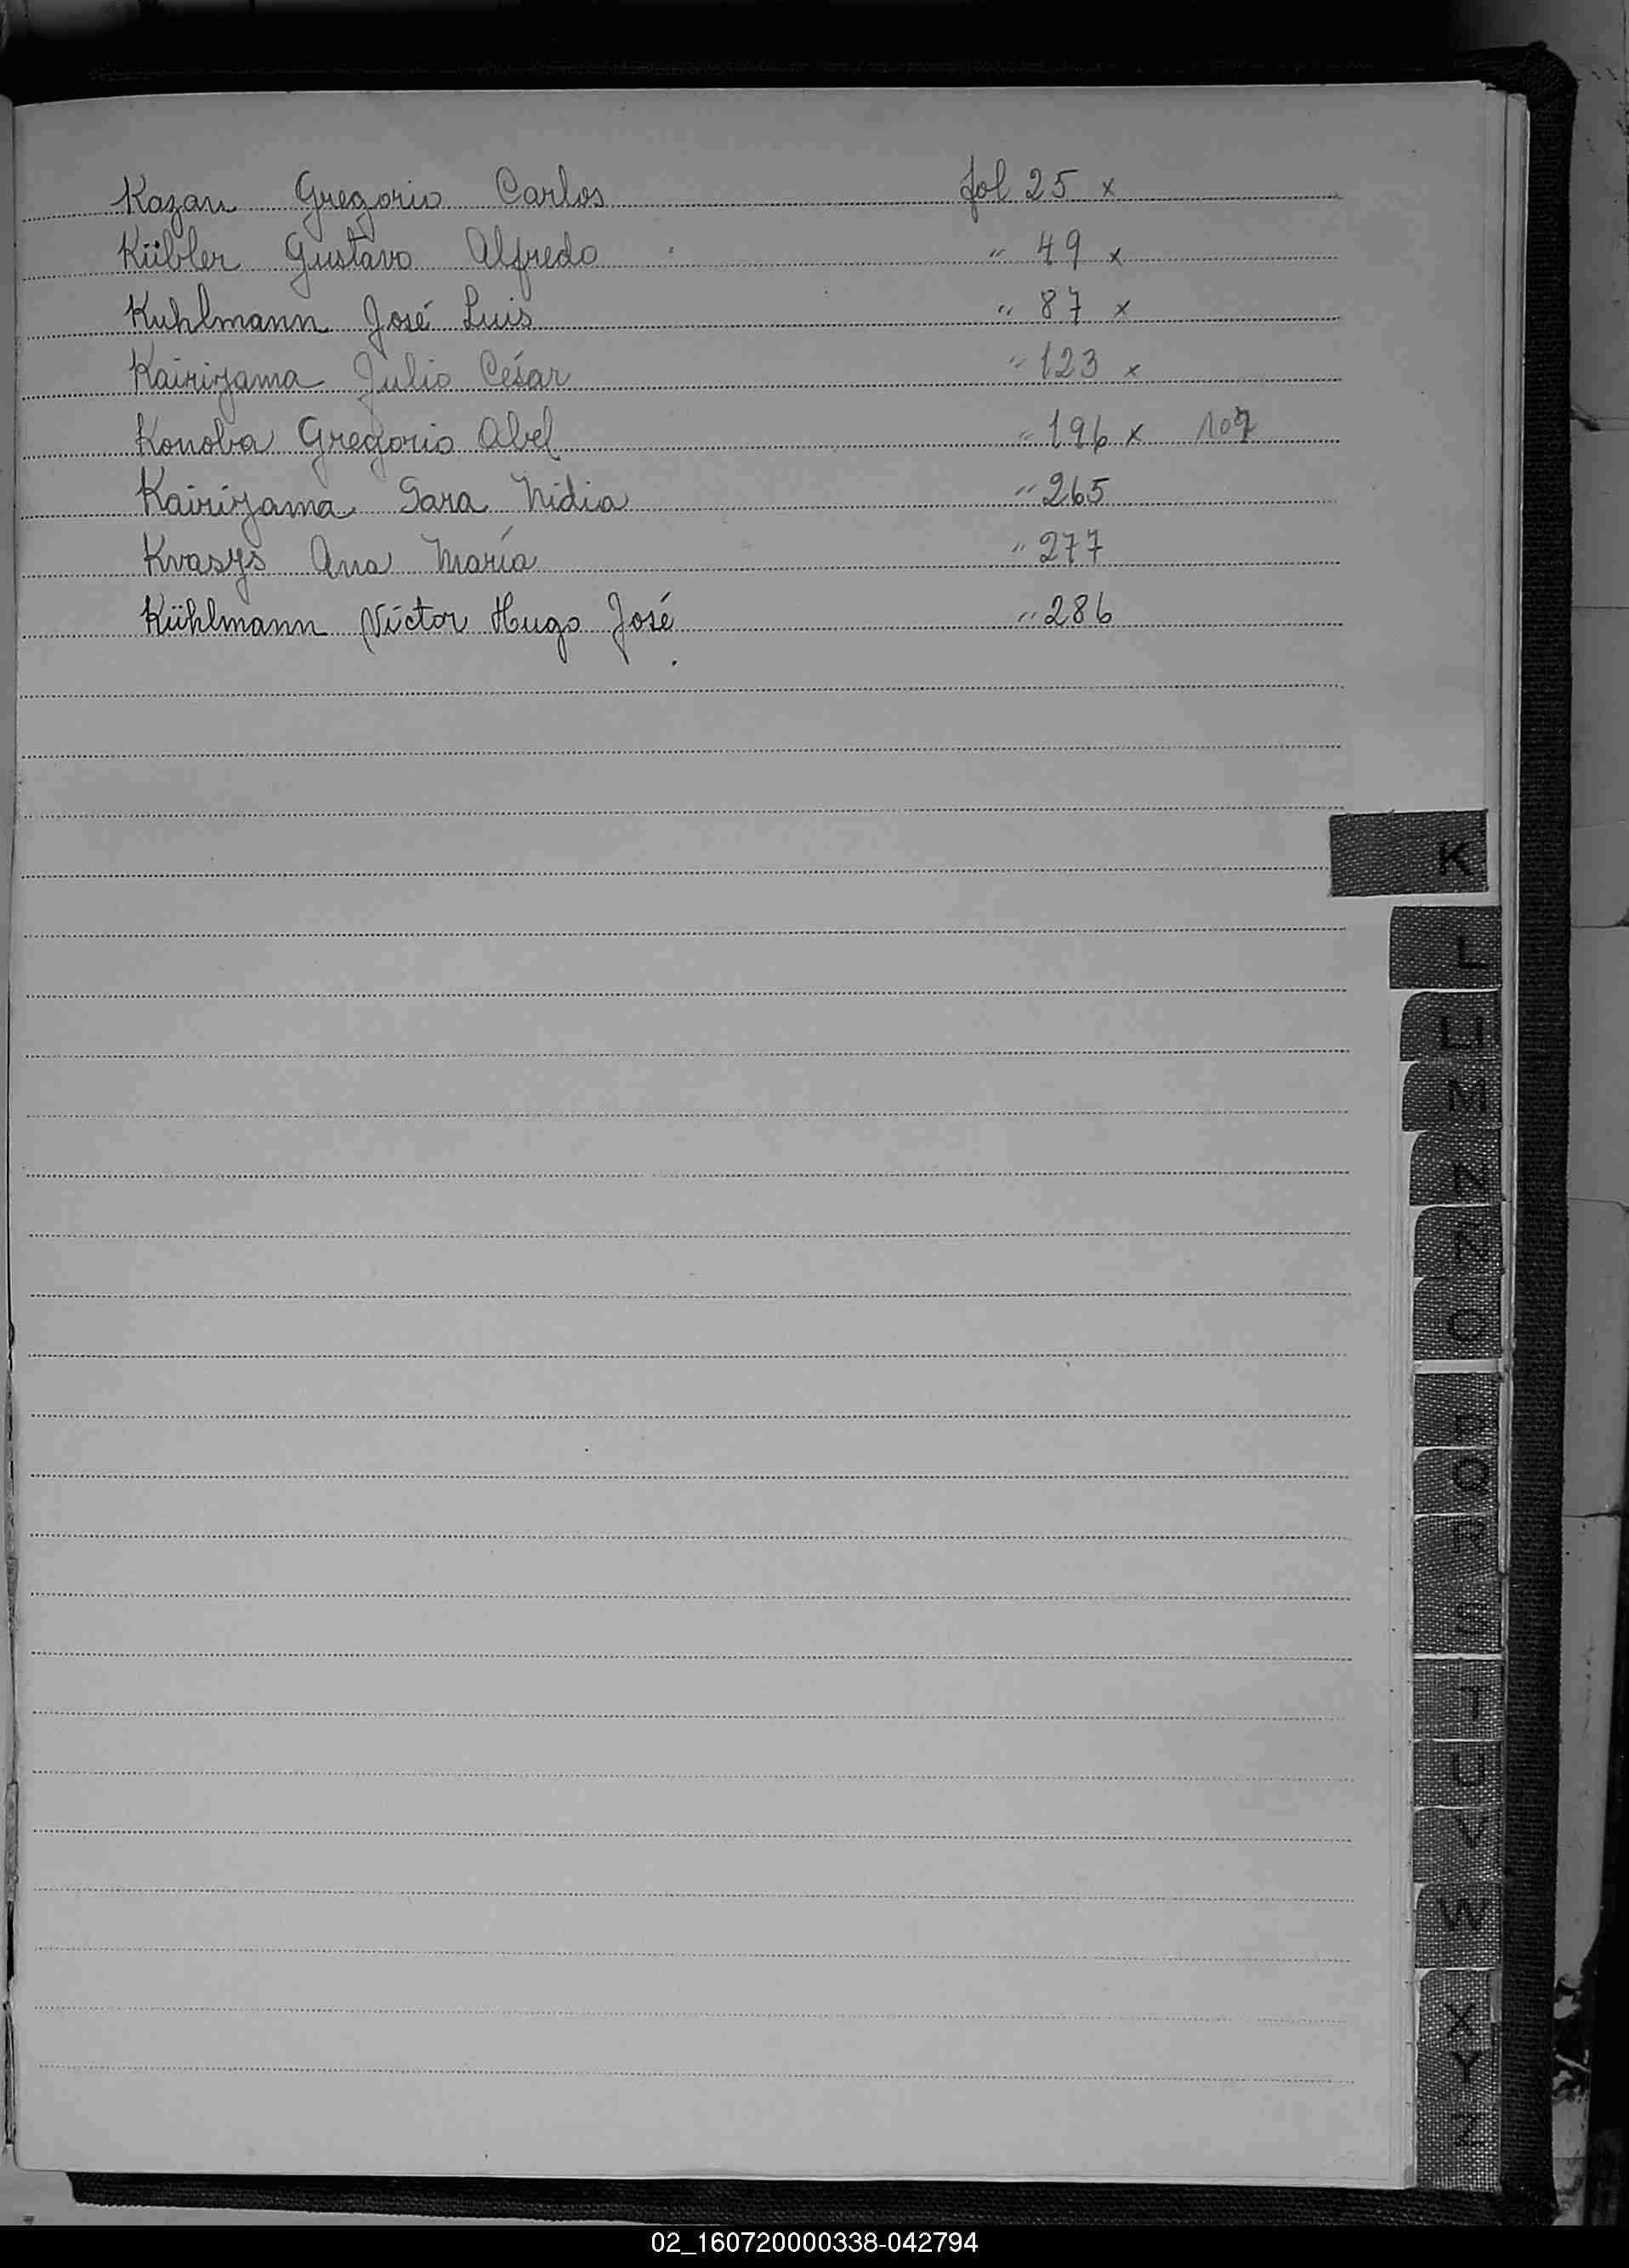 Kazan Gregorio Carlos fol 25 x
Kübler Gustavo Alfredo " 49 x
Kuhlmann José Luis " 87 x
Kairiyama Julio César " 123 x
Konoba Gregorio Abel " 196 x 107
Kairiyama Sara Nidia " 265
Kvasys Ana María " 277
Kühlmann Víctor Hugo José " 286
K
L
LL
M
N
Ñ
O
P
Q
R
S
T
U
V
W
X
Y
Z
02_160720000338-042794